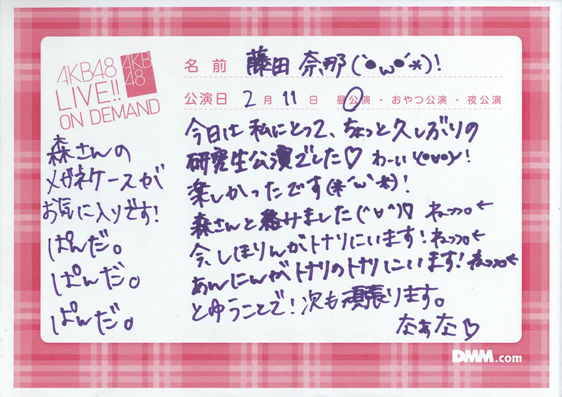 AKB48
LIVE!!
ON DEMAND
AKB
48
名前 藤田奈那(`●ω●´*)!
公演日 2月11日 昼公演・おやつ公演・夜公演
今日は私にとって、ちょっと久しぶりの
研究生公演でした♡ わーい(●▽●)ノ!
楽しかったです(*´ω`*)!
森さんと絡みました(^∨^)♡ ねっっ。←
今、しほりんがトナリにいます!ねっっ。←
あんにんがトナリのトナリにいます!ねっっ。←
とゆうことで!次も頑張ります。
なぁな♡
森さんの
メガネケースが
お気に入りです!
ぱんだ。
ぱんだ。
ぱんだ。
DMM.com